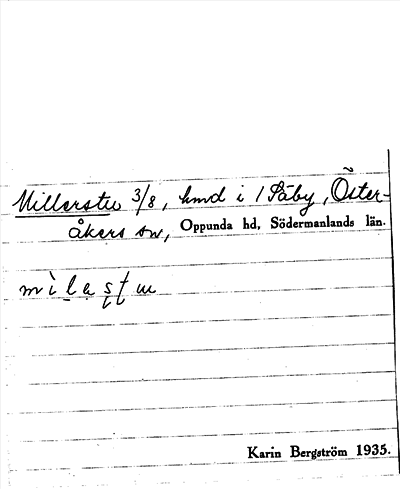 Millerstu 3/8, hmd i 1 Säby, Öster-
åkers sn, Oppunda hd, Södermanlands län.
Karin Bergström 1935.